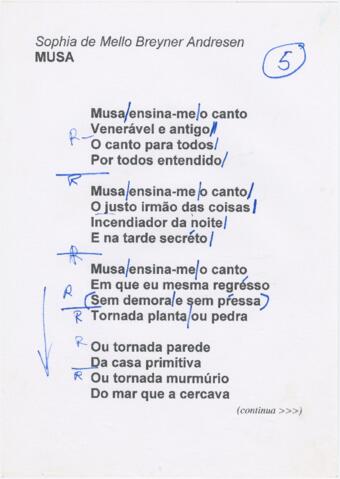 Sophia de Mello Breyner Andresen
MUSA
5
Musa/ensina-me/o canto
R- Venerável e antigo//
O canto para todos/
Por todos entendido/
R
Musa/ensina-me/o canto/
O justo irmão das coisas/
Incendiador da/noite/
E na tarde secréto/
R
Musa/ensina-me/o canto
R Em que eu mesma regrésso
(Sem demora/e sem préssa)
R Tornada planta/ou pedra
R Ou tornada parede
Da casa primitiva
R Ou tornada murmúrio
Do mar que a cercava
(continua >>>)